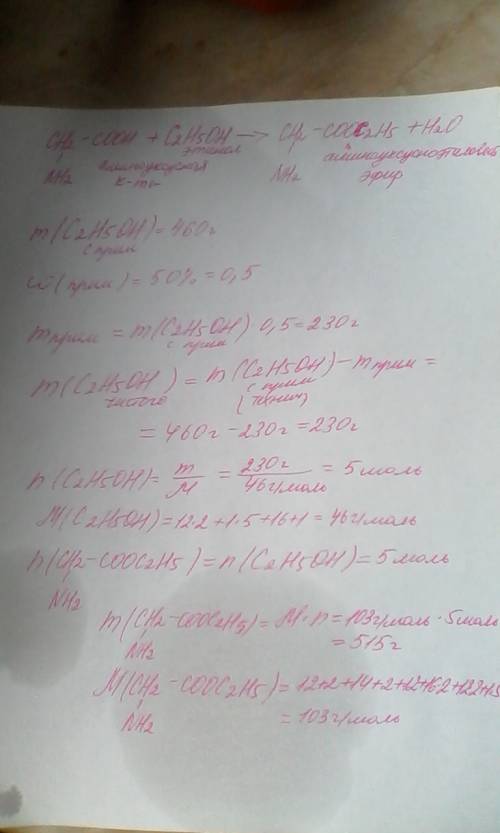 CH2 - COOH + C2H5OH → CH2 - COOC2H5 + H2O
этанол
NH2 аминоуксусная к-та NH2 аминоуксусноэтиловый эфир
m(C2H5OH) = 460г
с прим
ω(прим) = 50% = 0,5
mприм = m(C2H5OH) · 0,5 = 230г
с прим
m(C2H5OH) = m(C2H5OH) - mприм =
чистого с прим
(технич)
= 460г - 230г = 230г
n(C2H5OH) = m/M = 230г/46г/моль = 5 моль
M(C2H5OH) = 12·2 + 1·5 + 16 + 1 = 46г/моль
n(CH2 - COOC2H5) = n(C2H5OH) = 5 моль
NH2
m(CH2 - COOC2H5) = M · n = 103г/моль · 5моль
NH2 = 515г
M(CH2 - COOC2H5) = 12+2+14+2+12+16·2+12·2+1·5
NH2 = 103г/моль